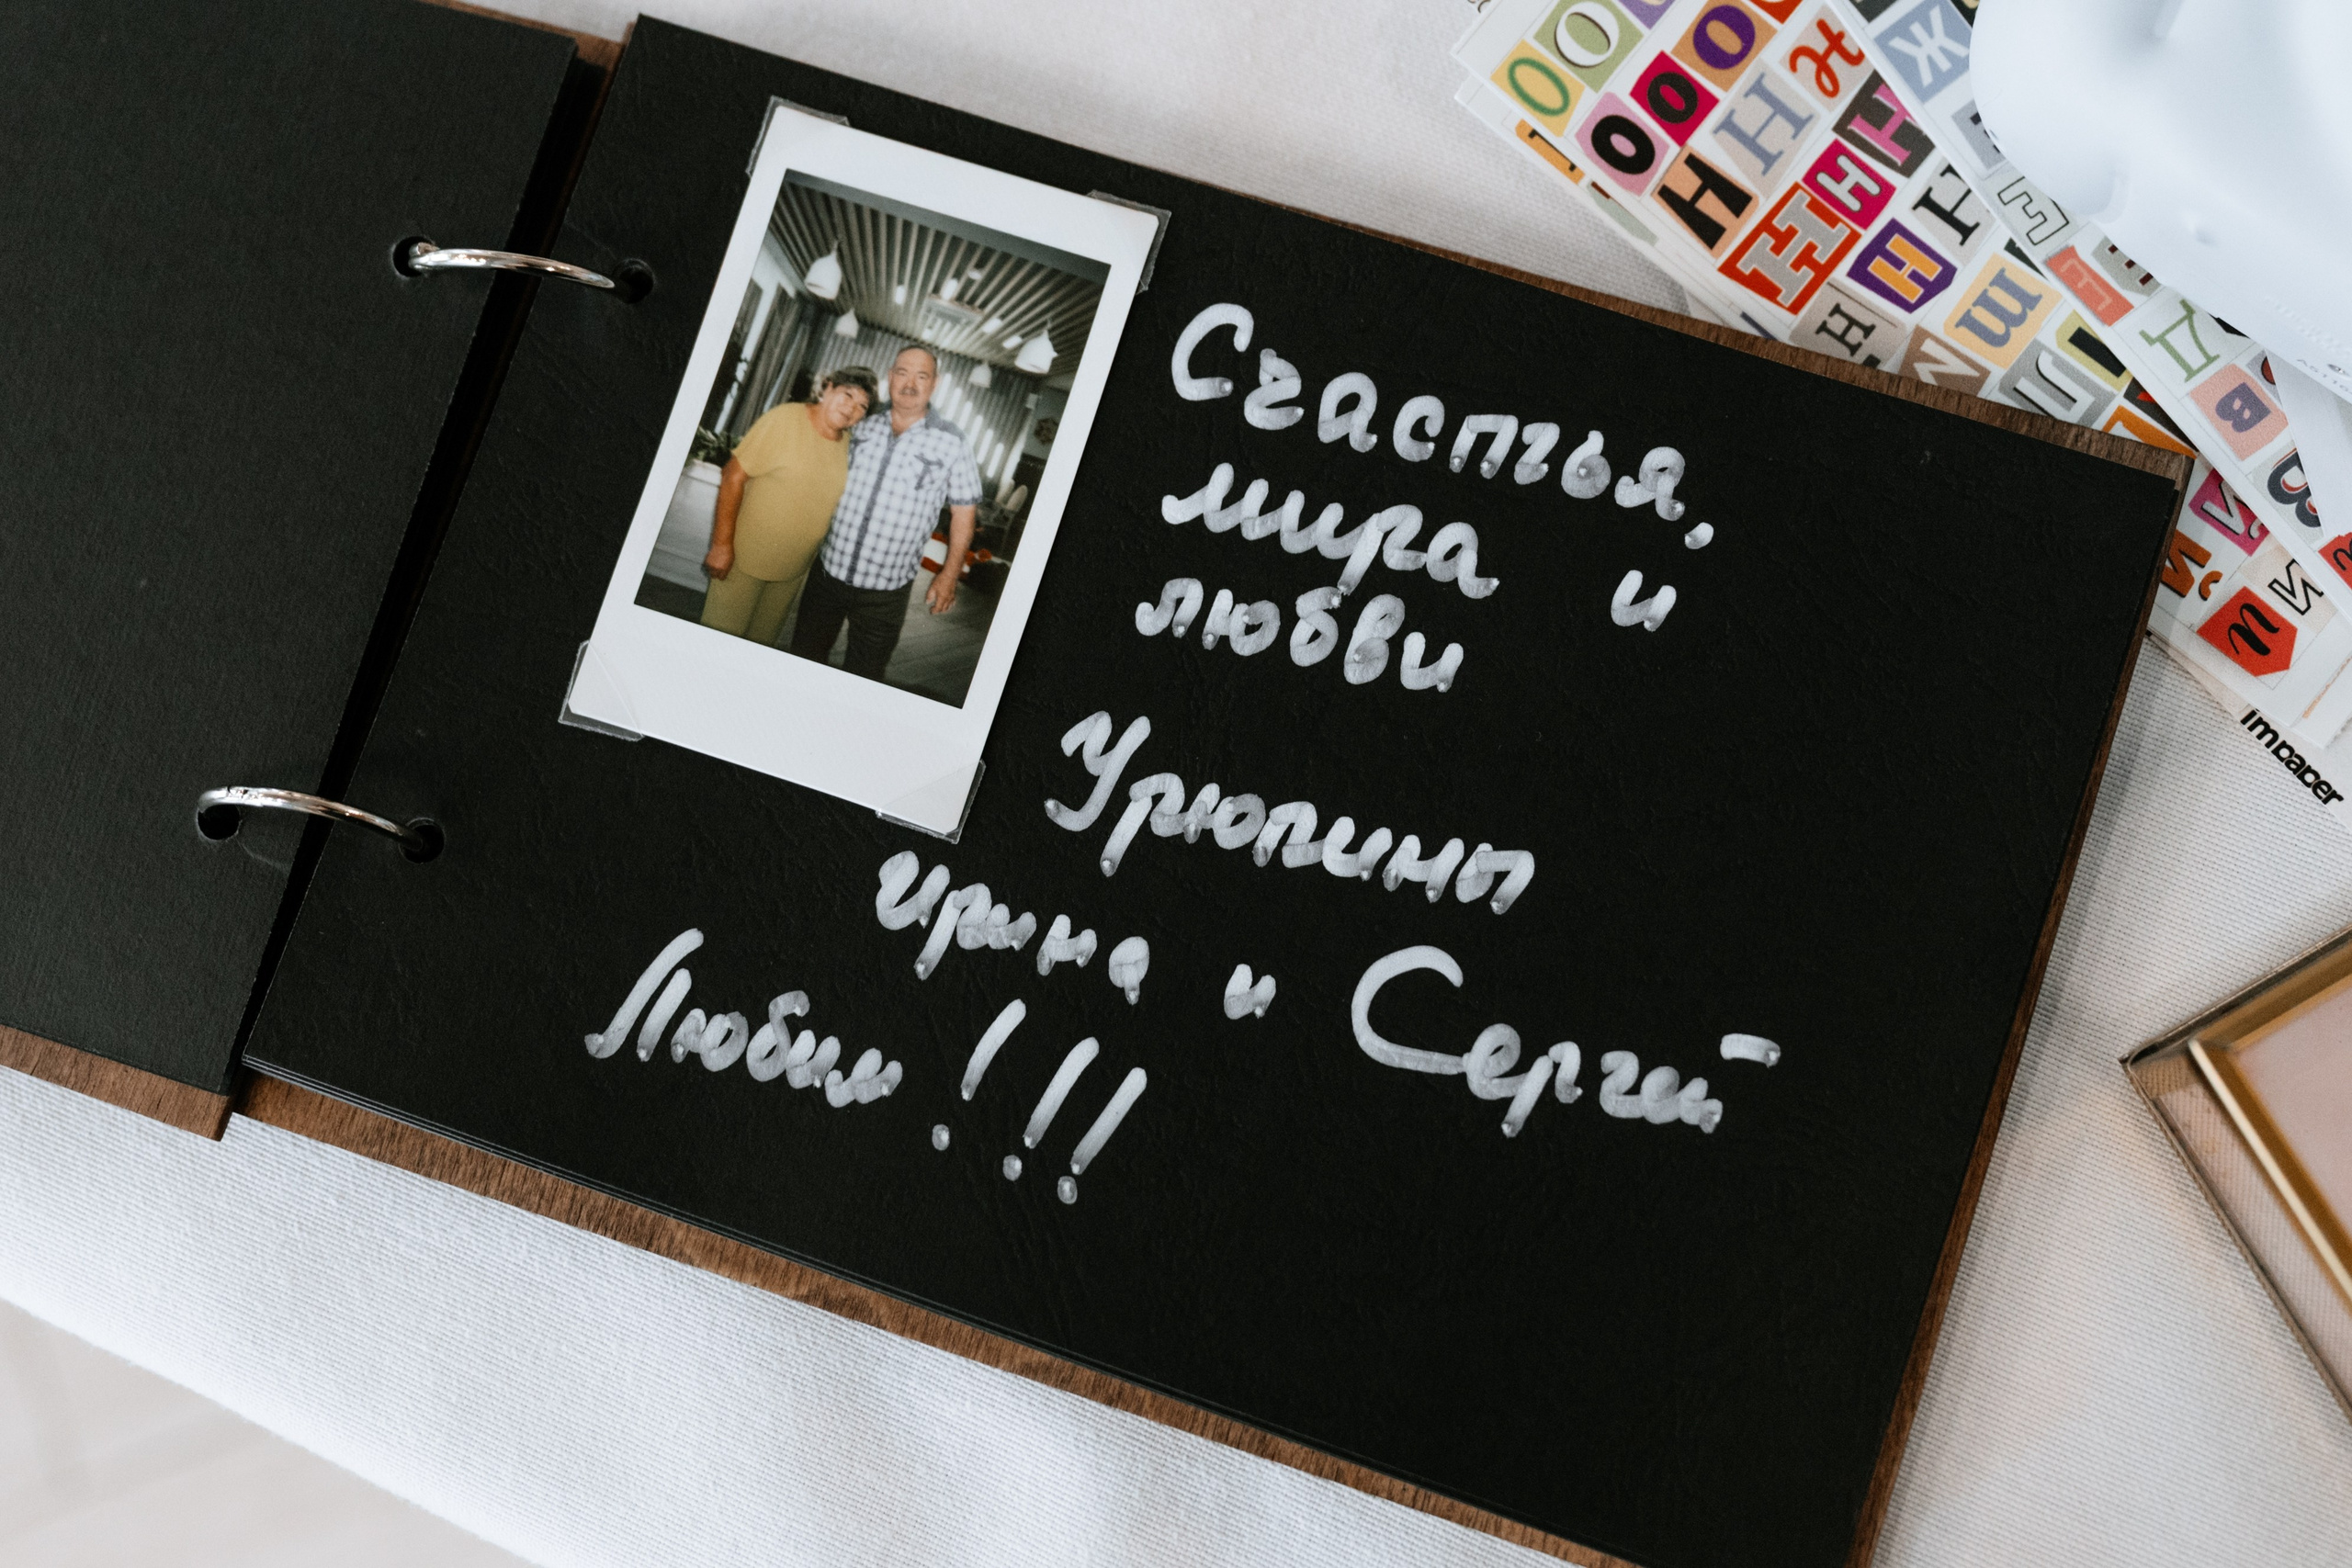 Счастья,
мира и
любви
Урюпины
Ирина и Сергей
Любим!!!
impaper